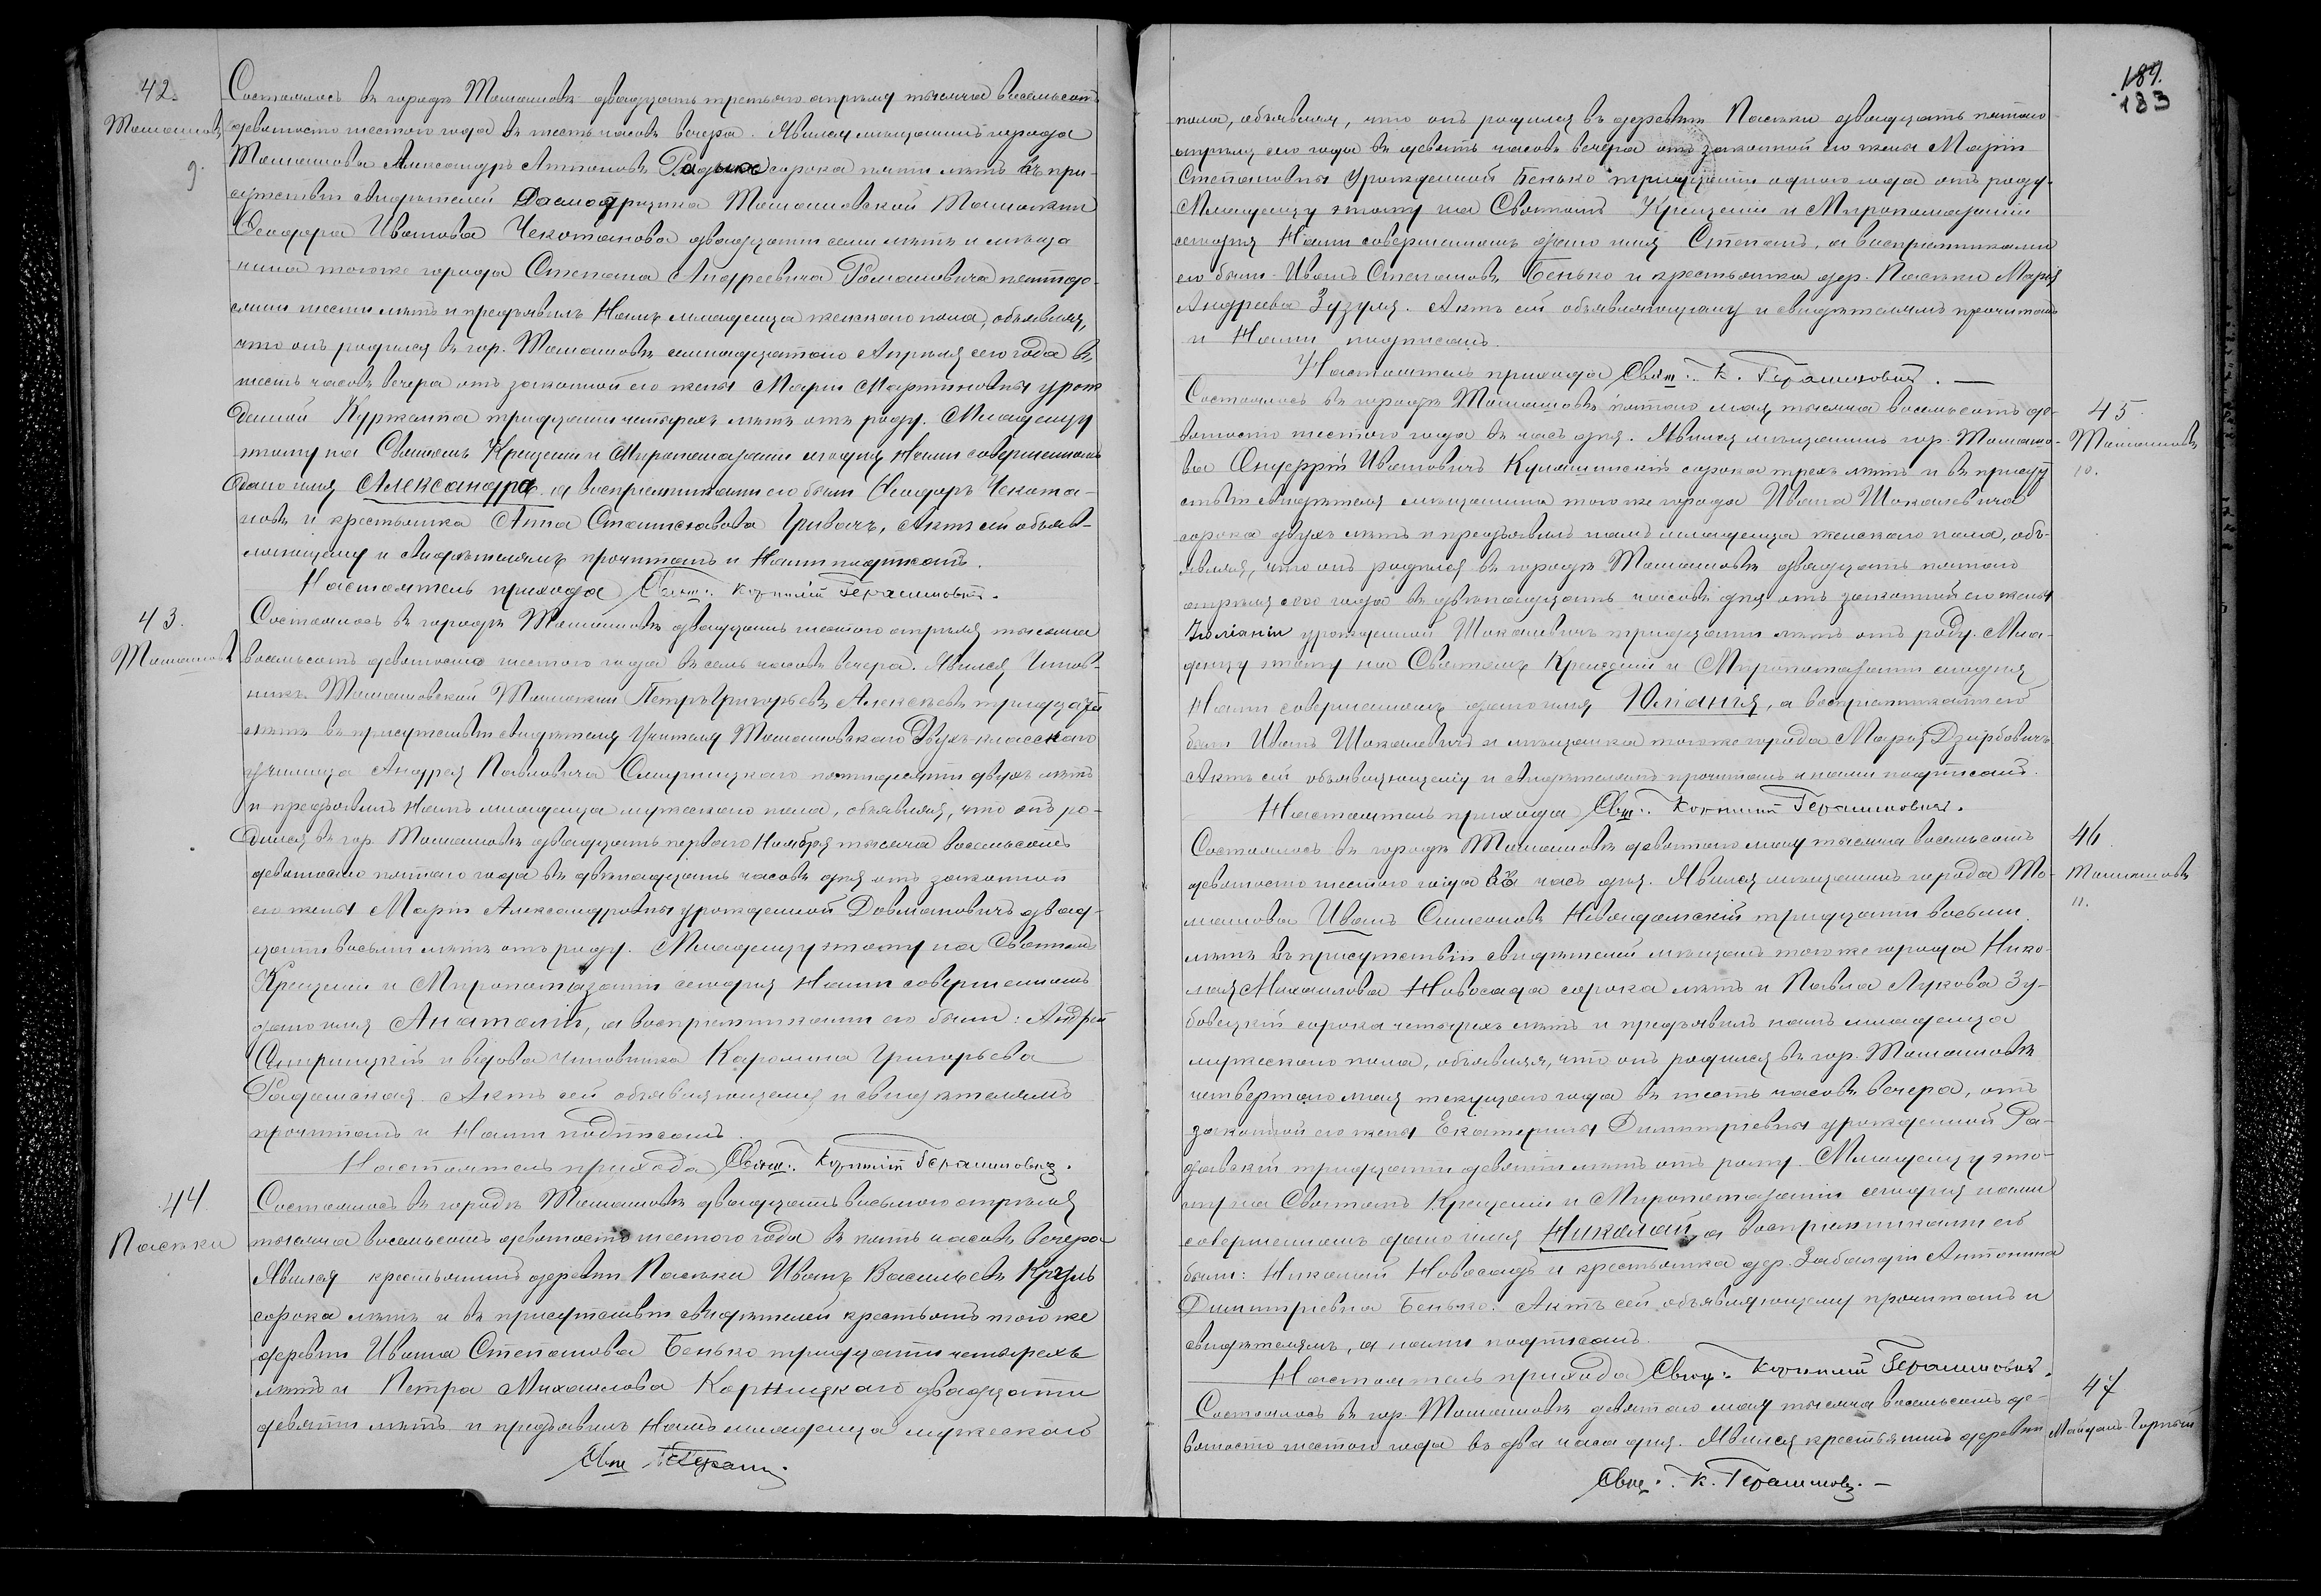 42.
Томашовъ
9.
Состоялось въ городѣ Томашовѣ двадцать третьяго апрѣля тысяча восемьсотъ
девяносто шестого года въ шесть часовъ вечера. Явился мѣщанинъ города
Томашова Александръ Антоновъ сорока пяти лѣтъ въ при-
сутствіи свидѣтелей Томашовской Таможни
Ѳеодора Иванова Чекотанова двадцати семи лѣтъ и мѣща
нина того же города Степана Андреевича Романовича пятиде-
сяти шести лѣтъ и предъявилъ Намъ младенца женскаго пола, объявляя,
что онъ родился въ гор. Томашовѣ семнадцатого Апрѣля сего года въ
шесть часовъ вечера отъ законной его жены Маріи Мартиновны урож
денной тридцати четырехъ лѣтъ отъ роду. Младенцу
этому на Святомъ Крещеніи и Миропомазаніи сегодня Нами совершенномъ
дано имя Александра, а воспріемниками его были Ѳеодоръ Чекота-
новъ и крестьянка Анна Станиславова Гривачъ. Актъ сей объяв-
ляющему и свидѣтелямъ прочитанъ и Нами подписанъ.
Настоятель прихода Свящ. Корнилій Герасимовичъ.
43.
Томашовъ
Состоялось въ городѣ Томашовѣ двадцать шестого апрѣля тысяча
восемьсотъ девяносто шестого года въ семь часовъ вечера. Явился Чинов-
никъ Томашовской Таможни Петръ Григорьевъ Алексѣевъ тридцати
лѣтъ въ присутствіи свидѣтеля Учителя Томашовскаго Двухъ-класснаго
училища Андрея Павловича пятидесяти двухъ лѣтъ
и предъявилъ Намъ младенца мужескаго пола, объявляя, что онъ ро-
дился въ гор. Томашовѣ двадцать первого Ноября тысяча восемьсотъ
девяносто пятаго года въ двѣнадцать часовъ дня отъ законной
его жены Маріи Александровны урожденной Довмановичъ двад-
цати восьми лѣтъ отъ роду. Младенцу этому на Святомъ
Крещеніи и Миропомазаніи сегодня Нами совершенномъ
дано имя Анатолій, а воспріемниками его были: Андрей
и вдова чиновника Каролина Григорьева
Радомская. Актъ сей объявляющему и свидѣтелямъ
прочитанъ и Нами подписанъ.
Настоятель прихода Свящ. Корнилій Герасимовичъ.
44
Пасѣки
Состоялось въ городѣ Томашовѣ двадцать восьмого апрѣля
тысяча восемьсотъ девяносто шестого года въ пять часовъ вечера
Явился крестьянинъ деревни Пасѣки Иванъ Васильевъ Круль
сорока лѣтъ и въ присутствіи свидѣтелей крестьянъ той же
деревни Ивана Степанова Бенько тридцати четырехъ
лѣтъ и Петра Михаилова Корницкаго двадцати
девяти лѣтъ и предъявилъ Намъ младенца мужескаго
Свящ.
187.
183
пола, объявляя, что онъ родился въ деревнѣ Пасѣки двадцать пятого
апрѣля сего года въ девять часовъ вечера отъ законной его жены Маріи
Степановны Урожденной Бенько тридцати одного года отъ роду.
Младенцу этому на Святомъ Крещеніи и Миропомазаніи
сегодня Нами совершенномъ дано имя Степанъ, а воспріемниками
его были Иванъ Степановъ Бенько и крестьянка дер. Пасѣки Марія
Андреева Зузуля. Актъ сей объявляющему и свидѣтелямъ прочитанъ
и Нами подписанъ.
Настоятель прихода Свящ. К. Герасимовичъ.
45.
Томашовъ
10.
Состоялось въ городѣ Томашовѣ пятого мая тысяча восемьсотъ де-
вяносто шестого года въ часъ дня. Явился мѣщанинъ гор. Томашо-
ва Онуфрій Ивановичъ сорока трехъ лѣтъ и въ присут
ствіи свидѣтеля мѣщанина того же города Ивана Шокалевича
сорока двухъ лѣтъ и предъявилъ намъ младенца женскаго пола, объ-
являя, что онъ родился въ городѣ Томашовѣ двадцать пятого
апрѣля сего года въ двѣнадцать часовъ дня отъ законной его жены
Юліаніи урожденной Шокалевичъ тридцати лѣтъ отъ роду. Мла-
денцу этому на Святомъ Крещеніи и Миропомазаніи сегодня
Нами совершенномъ дано имя Юліанія, а воспріемниками ей
были Иванъ Шокалевичъ и мѣщанка того же города Марія Дзирбовичъ
Актъ сей объявляющему и свидѣтелямъ прочитанъ и нами подписанъ.
Настоятель прихода Свящ. Корнилій Герасимовичъ.
46
Томашовъ
11.
Состоялось въ городѣ Томашовѣ девятого мая тысяча восемьсотъ
девяносто шестого года въ часъ дня. Явился мѣщанинъ города То-
машова Иванъ Симеоновъ тридцати восьми
лѣтъ въ присутствіи свидѣтелей мѣщанъ того же города Нико-
лая Михаилова Новосада сорока лѣтъ и Павла Лукова Зу-
бовецкій сорока четырехъ лѣтъ и предъявилъ намъ младенца
мужескаго пола, объявляя, что онъ родился въ гор. Томашовѣ
четвертого мая текущаго года въ шесть часовъ вечера, отъ
законной его жены Екатерины Димитріевны урожденной Ра-
довскій тридцати девяти лѣтъ отъ роду. Младенцу это-
му на Святомъ Крещеніи и Миропомазаніи сегодня нами
совершенномъ дано имя Николай, а воспріемниками его
были: Николай Новосадъ и крестьянка дер. Антонина
Димитріевна Бенько. Актъ сей объявляющему прочитанъ и
свидѣтелямъ, а нами подписанъ.
Настоятель прихода Свящ. Корнилій Герасимовичъ.
47
Майданъ-Горный
Состоялось въ гор. Томашовѣ девятого мая тысяча восемьсотъ де-
вяносто шестого года въ два часа дня. Явился крестьянинъ деревни
Свящ. К. Герасимовъ.